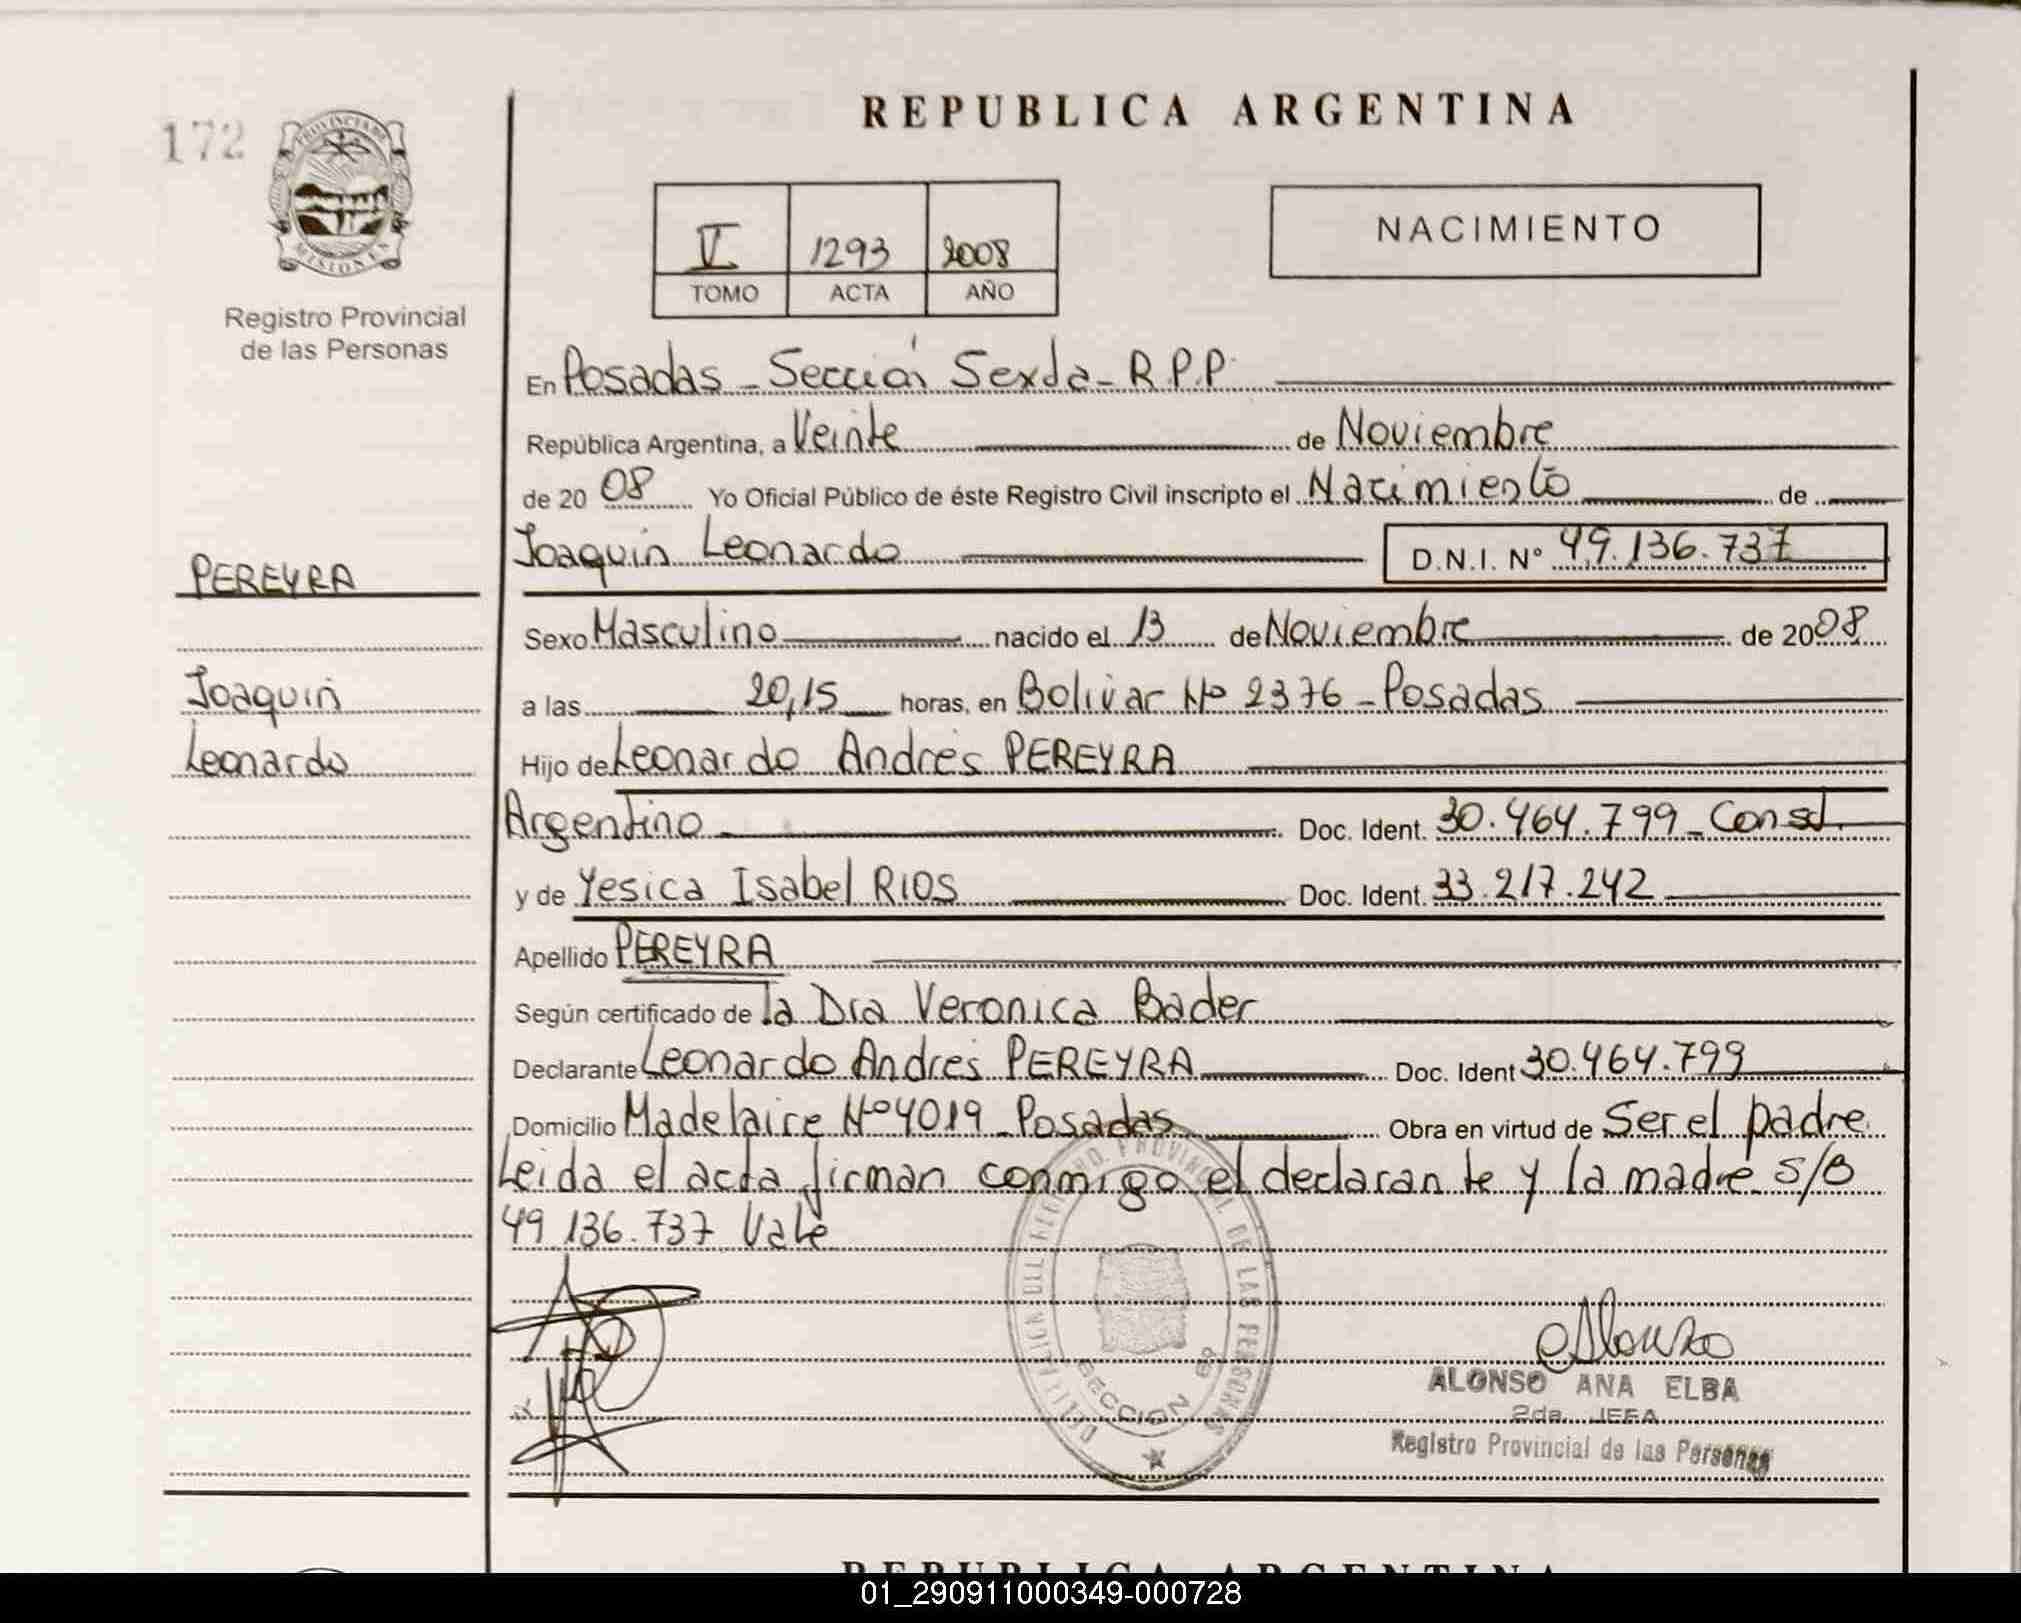 REPUBLICA ARGENTINA
172
PROVINCIA DE
MISIONES
Registro Provincial
de las Personas
V 1293 2008
TOMO ACTA AÑO
NACIMIENTO
En Posadas - Sección Sexta - R.P.P.
República Argentina, a Veinte de Noviembre
de 20 08 Yo Oficial Público de éste Registro Civil inscripto el Nacimiento de
Joaquin Leonardo D.N.I. Nº 49.136.737
PEREYRA
Sexo Masculino nacido el 13 de Noviembre de 2008
Joaquin
a las 20,15 horas, en Bolivar Nº 2376 - Posadas
Leonardo
Hijo de Leonardo Andres PEREYRA
Argentino Doc. Ident. 30.464.799 - Const.
y de Yesica Isabel RIOS Doc. Ident. 33.217.242
Apellido PEREYRA
Según certificado de la Dra Veronica Bader
Declarante Leonardo Andres PEREYRA Doc. Ident 30.464.799
Domicilio Madelaire Nº 4019 - Posadas Obra en virtud de Ser el padre
Leida el acta firman conmigo el declarante y la madre. S/B
49.136.737 Vale
DEL REGTRO. PROVINCIAL DE LAS PERSONAS
SECCION 6ª
Alonso
ALONSO ANA ELBA
2da. JEFA
Registro Provincial de las Personas
REPUBLICA ARGENTINA
01_290911000349-000728